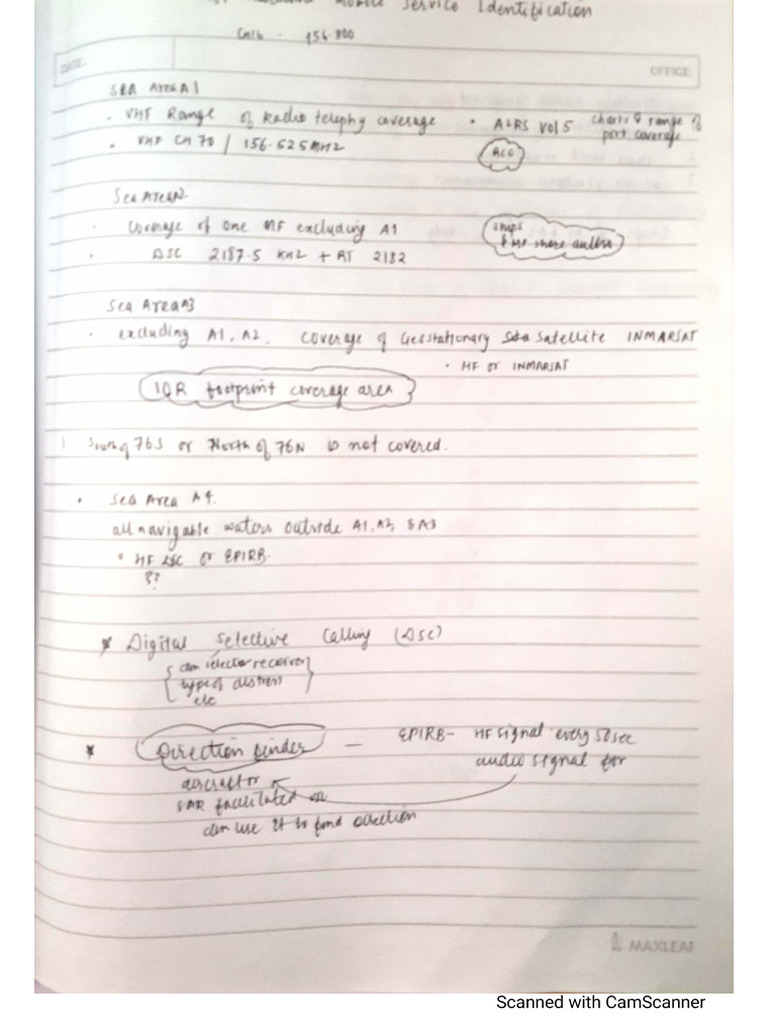 Mobile Service Identification
Ch16 - 156.800
DATE:
OFFICE
Sea Area A1
• VHF Range of Radio telephy coverage • ALRS Vol 5 charts & range of port coverage
• VHF CH 70 / 156.525 MHz
Sea Area A2
• Coverage of one MF excluding A1 ships
• DSC 2187.5 KHz + RT 2182
Sea Area A3
• excluding A1, A2, coverage of Geostationary Satellite INMARSAT
• HF or INMARSAT
IOR footprint coverage area
South of 76S or North of 76N is not covered.
• Sea Area A4.
all navigable waters outside A1, A2, & A3
• HF DSC or EPIRB.
8?
* Digital Selective Calling (DSC)
can select receiver
type of distress
etc
* Direction finder — EPIRB- HF signal every 50sec
audio signal for
aircraft or
SAR facilitated
can use it to find direction
MAXLEAF
Scanned with CamScanner